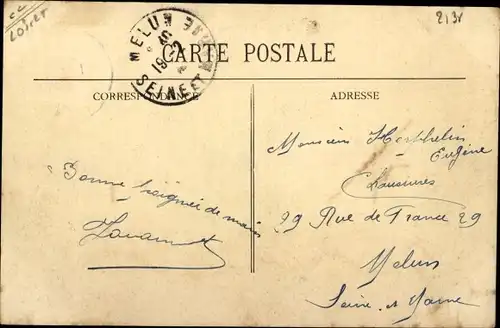 Loiret
213v
MELUN
SEINE ET M
CARTE POSTALE
CORRESPONDANCE
ADRESSE
Monsieur
Eugène
Bonne poignée de main
29 Rue de France 29
Melun
Seine et Marne